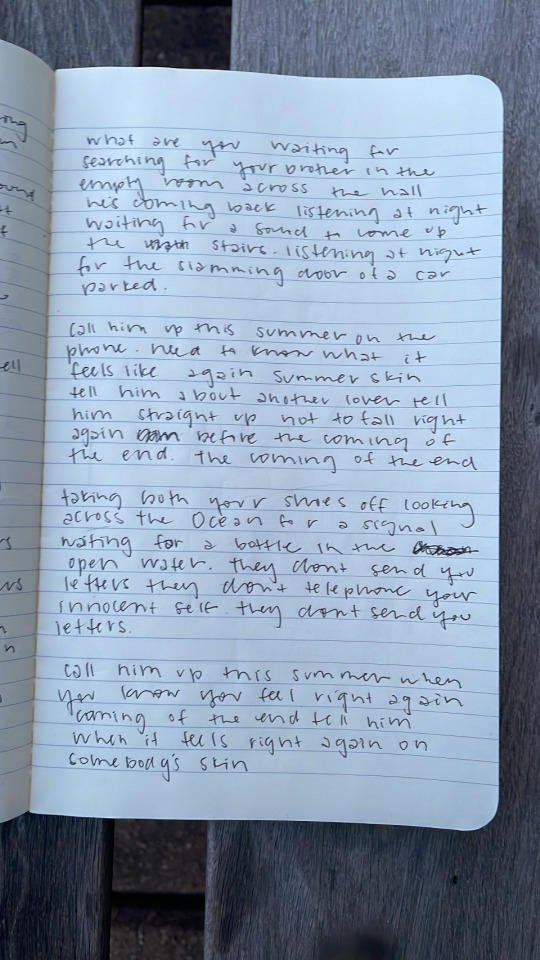 what are you waiting for
searching for your brother in the
empty room across the hall
he's coming back listening at night
waiting for a sound to come up
the stairs. listening at night
for the slamming door of a car
parked.
call him up this summer on the
phone. need to know what it
feels like again summer skin
tell him about another lover tell
him straight up not to fall right
again before the coming of
the end. the coming of the end
taking both your shoes off looking
across the Ocean for a signal
waiting for a bottle in the
open water. they dont send you
letters they don't telephone your
innocent self. they dont send you
letters.
call him up this summer when
you know you feel right again
coming of the end tell him
when it feels right again on
somebody's skin